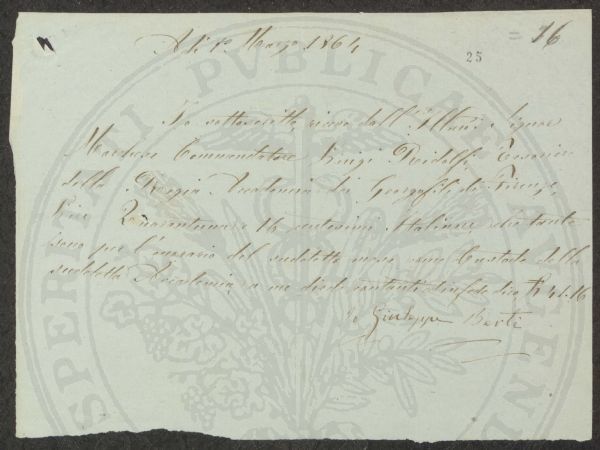 = 16
25
A dì 1° Marzo 1864
Io sottoscritto ricevo dall' Illmo Signore
Marchese Commendatore Luigi Ridolfi Tesoriere
della Regia Accademia dei Georgofili di Firenze
Lire Quarantuna e 16 centesimi Italiane che tante
sono per l'onorario del suddetto mese come Custode della
suddetta Accademia a me contanti in fede dico 41.16
Io Giuseppe Berti
PVBLICA
SPERITATI